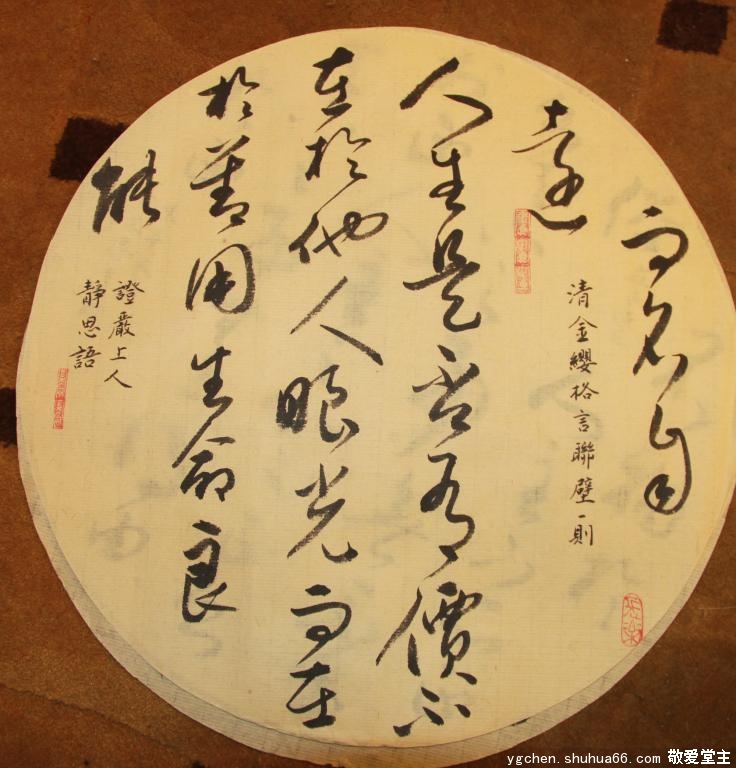 而名自
遠
清金纓格言聯璧一則
人生是否有價不
在於他人眼光而在
於善用生命良
能
證嚴上人
靜思語
ygchen.shuhua66.com 敬爱堂主